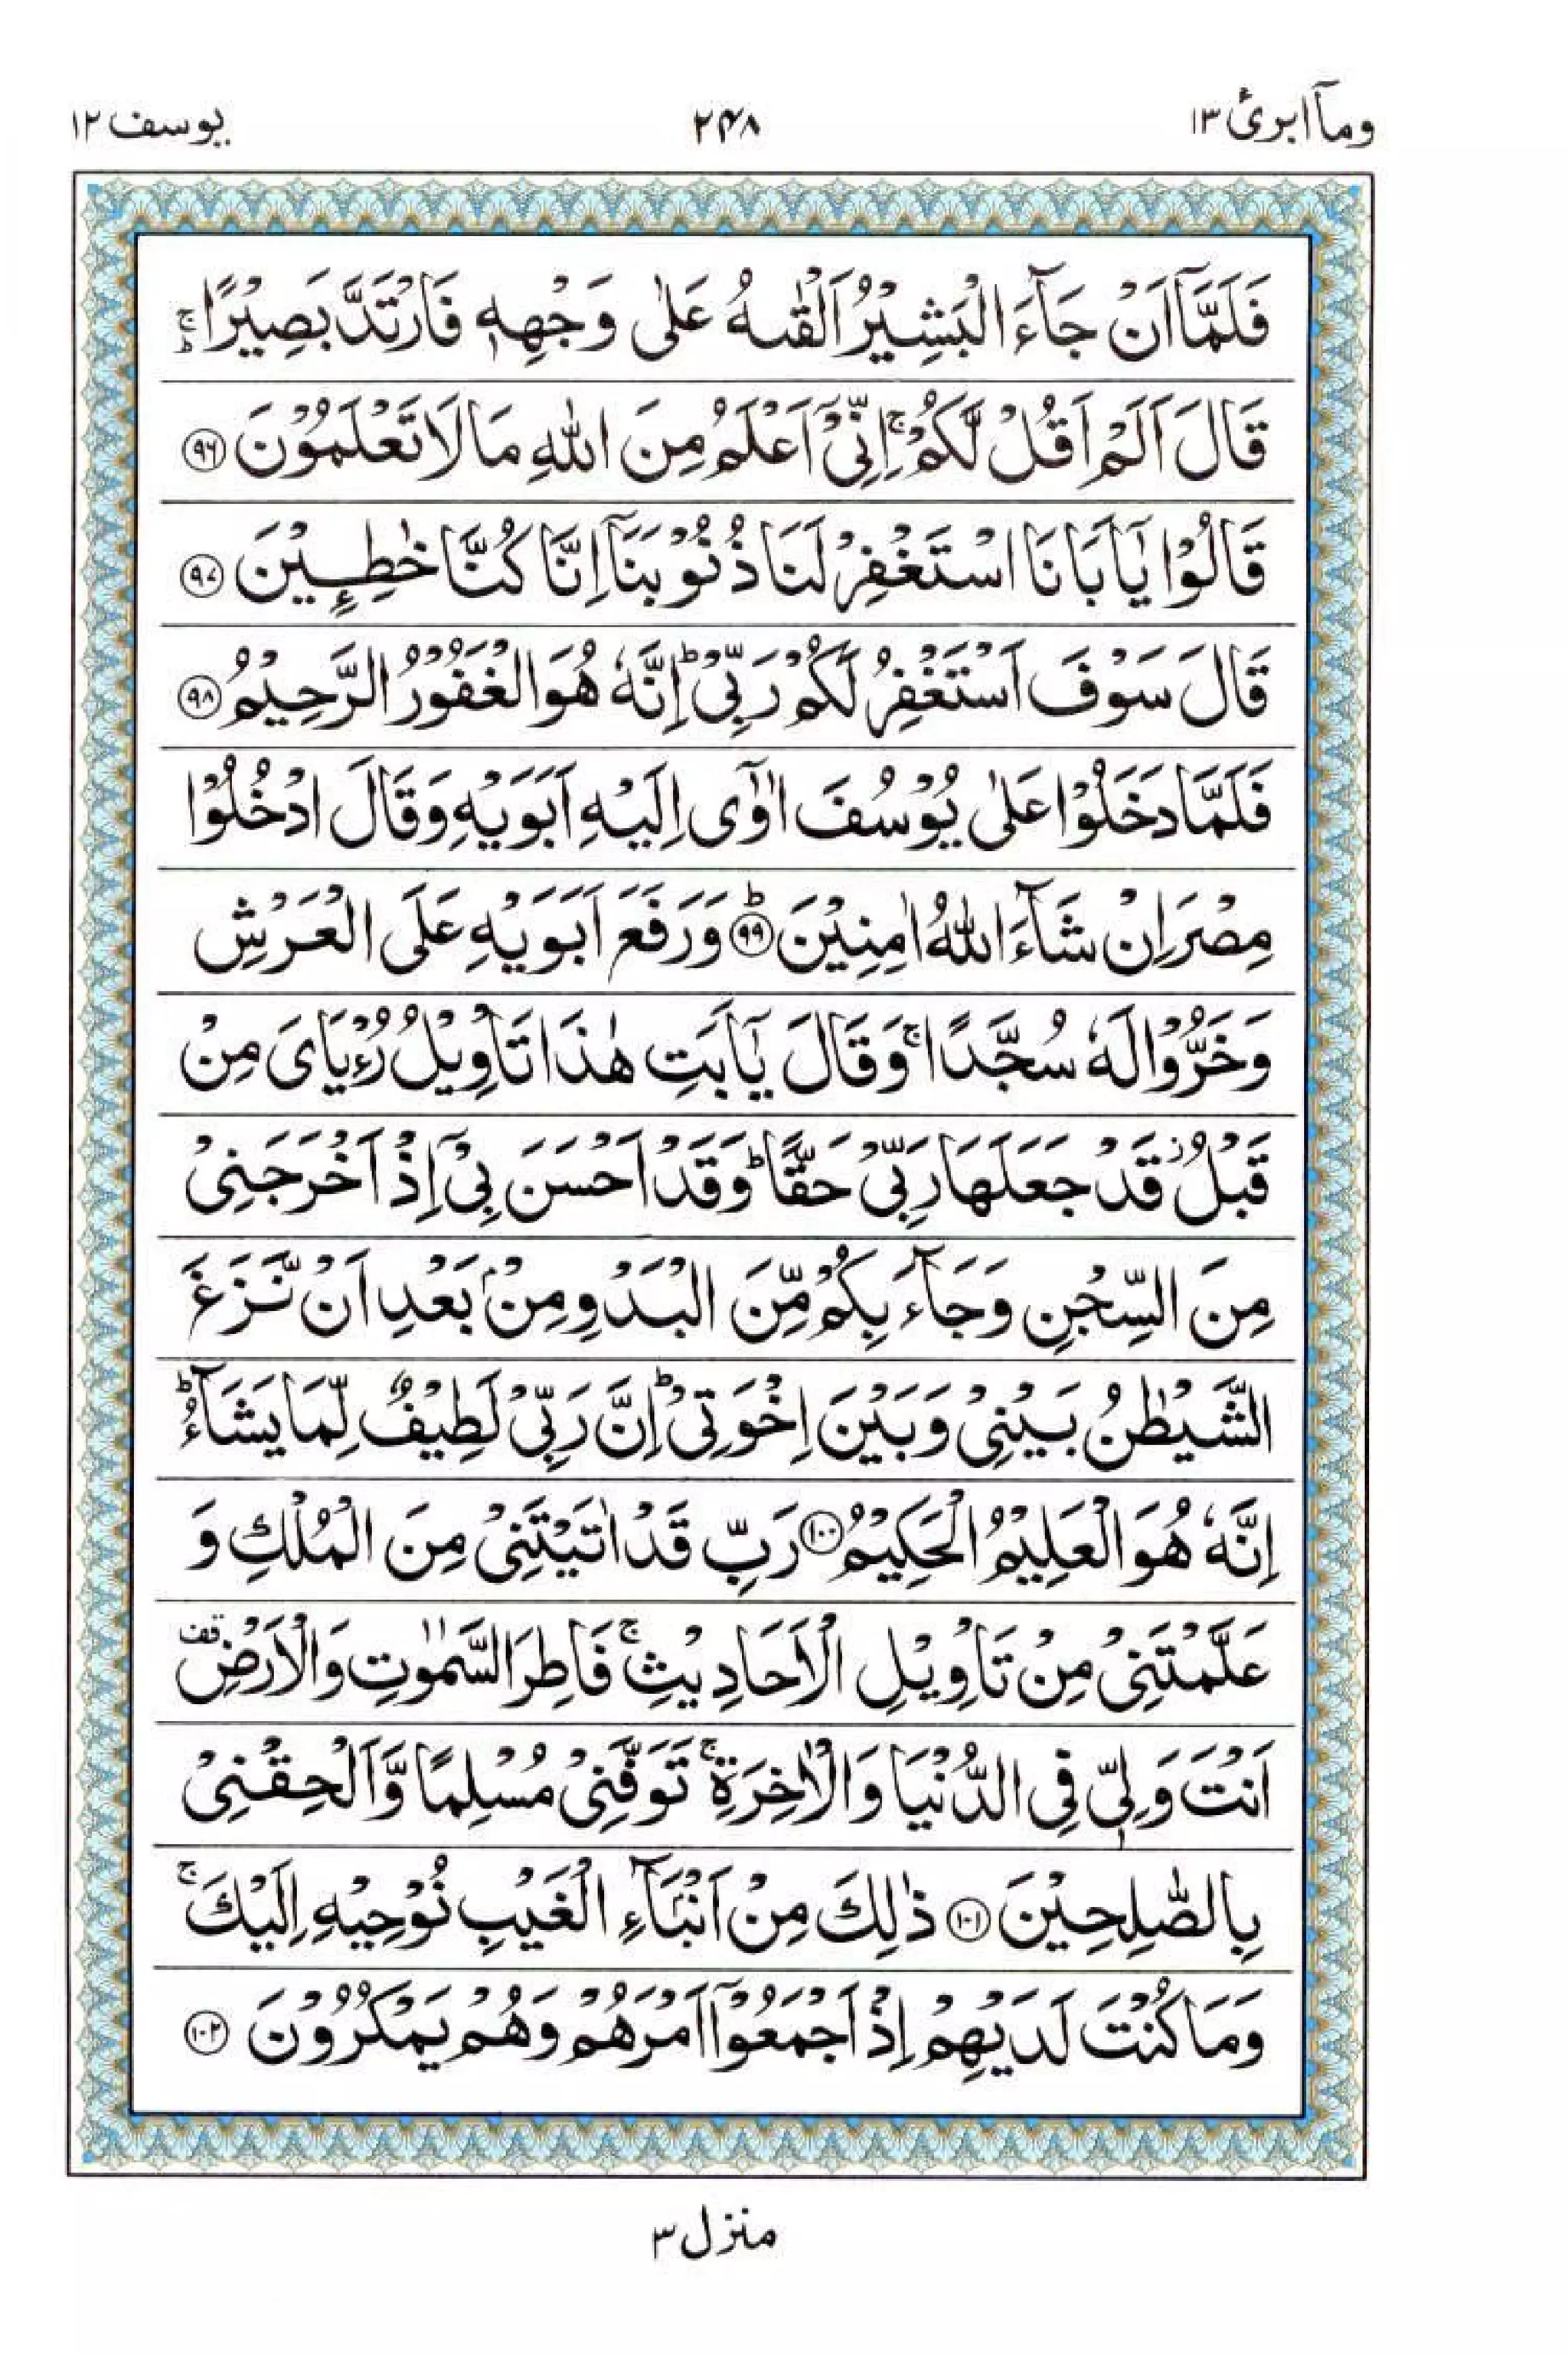 ومآ ابرئ ١٣ ٢٤٨ يوسف ١٢
فَلَمَّآ اَنْ جَآءَ الْبَشِيْرُ اَلْقٰىهُ عَلٰى وَجْهِهٖ فَارْتَدَّ بَصِيْرًا ۚؕ
قَالَ اَلَمْ اَقُلْ لَّكُمْ ۚ اِنِّىْٓ اَعْلَمُ مِنَ اللّٰهِ مَا لَا تَعْلَمُوْنَ ﴿٩٦﴾
قَالُوْا يٰٓاَبَانَا اسْتَغْفِرْ لَنَا ذُنُوْبَنَآ اِنَّا كُنَّا خٰطِـِٕيْنَ ﴿٩٧﴾
قَالَ سَوْفَ اَسْتَغْفِرُ لَكُمْ رَبِّىْ ؕ اِنَّهٗ هُوَ الْغَفُوْرُ الرَّحِيْمُ ﴿٩٨﴾
فَلَمَّا دَخَلُوْا عَلٰى يُوْسُفَ اٰوٰٓى اِلَيْهِ اَبَوَيْهِ وَقَالَ ادْخُلُوْا
مِصْرَ اِنْ شَآءَ اللّٰهُ اٰمِنِيْنَ ؕ﴿٩٩﴾ وَرَفَعَ اَبَوَيْهِ عَلَى الْعَرْشِ
وَخَرُّوْا لَهٗ سُجَّدًا ۚ وَقَالَ يٰٓاَبَتِ هٰذَا تَاْوِيْلُ رُءْيَاىَ مِنْ
قَبْلُ ز قَدْ جَعَلَهَا رَبِّىْ حَقًّا ؕ وَقَدْ اَحْسَنَ بِىْٓ اِذْ اَخْرَجَنِىْ
مِنَ السِّجْنِ وَجَآءَ بِكُمْ مِّنَ الْبَدْوِ مِنْۢ بَعْدِ اَنْ نَّزَغَ
الشَّيْطٰنُ بَيْنِىْ وَبَيْنَ اِخْوَتِىْ ؕ اِنَّ رَبِّىْ لَطِيْفٌ لِّمَا يَشَآءُ ؕ
اِنَّهٗ هُوَ الْعَلِيْمُ الْحَكِيْمُ ﴿١٠٠﴾ رَبِّ قَدْ اٰتَيْتَنِىْ مِنَ الْمُلْكِ وَ
عَلَّمْتَنِىْ مِنْ تَاْوِيْلِ الْاَحَادِيْثِ ۚ فَاطِرَ السَّمٰوٰتِ وَالْاَرْضِ قف
اَنْتَ وَلِىّٖ فِى الدُّنْيَا وَالْاٰخِرَةِ ۚ تَوَفَّنِىْ مُسْلِمًا وَّاَلْحِقْنِىْ
بِالصّٰلِحِيْنَ ﴿١٠١﴾ ذٰلِكَ مِنْ اَنْۢبَآءِ الْغَيْبِ نُوْحِيْهِ اِلَيْكَ ۚ
وَمَا كُنْتَ لَدَيْهِمْ اِذْ اَجْمَعُوْٓا اَمْرَهُمْ وَهُمْ يَمْكُرُوْنَ ﴿١٠٢﴾
منزل ٣